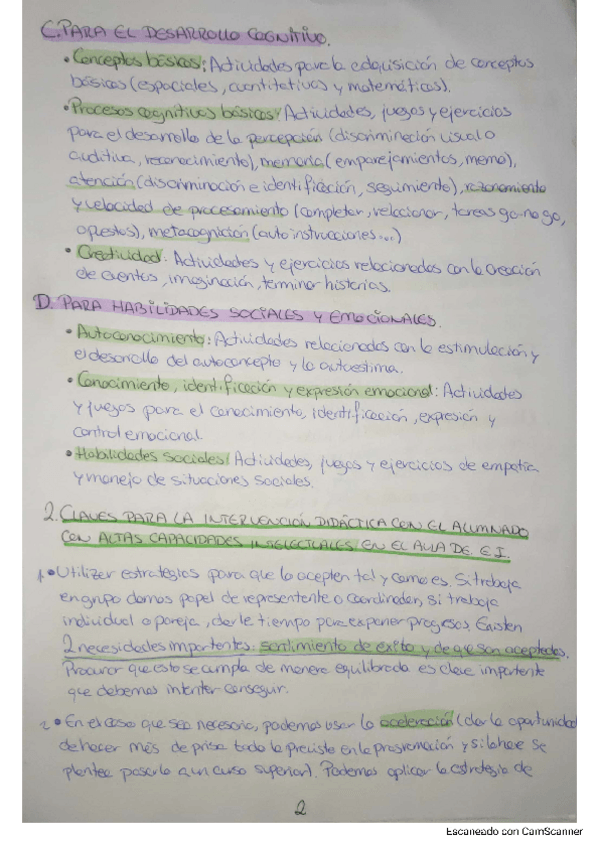 C. PARA EL DESARROLLO COGNITIVO.
• Conceptos básicos: Actividades para la adquisición de conceptos
básicos (espaciales, cuantitativos y matemáticos).
• Procesos cognitivos básicos: Actividades, juegos y ejercicios
para el desarrollo de la percepción (discriminación visual o
auditiva, reconocimiento), memoria (emparejamientos, memo),
atención (discriminación e identificación, seguimiento), razonamiento
y velocidad de procesamiento (completar, relacionar, tareas go-no go,
opuestos), metacognición (autoinstrucciones...)
• Creatividad: Actividades y ejercicios relacionados con la creación
de cuentos, imaginación, terminar historias.
D. PARA HABILIDADES SOCIALES Y EMOCIONALES.
• Autoconocimiento: Actividades relacionadas con la estimulación y
el desarrollo del autoconcepto y la autoestima.
• Conocimiento, identificación y expresión emocional: Actividades
y juegos para el conocimiento, identificación, expresión y
control emocional.
• Habilidades sociales: Actividades, juegos y ejercicios de empatía
y manejo de situaciones sociales.
2. CLAVES PARA LA INTERVENCIÓN DIDÁCTICA CON EL ALUMNADO
CON ALTAS CAPACIDADES INTELECTUALES EN EL AULA DE E.I.
1. • Utilizar estrategias para que lo acepten tal y como es. Si trabaja
en grupo damos papel de representante o coordinador, si trabaja
individual o pareja, darle tiempo para exponer progresos. Existen
2 necesidades importantes: sentimiento de éxito y de que son aceptados.
Procurar que esto se cumpla de manera equilibrada es clave importante
que debemos intentar conseguir.
2. • En el caso que sea necesario, podemos usar la aceleración (dar la oportunidad
de hacer más deprisa todo lo previsto en la programación y si lo hace se
plantea pasarlo a un curso superior). Podemos aplicar la estrategia de
2
Escaneado con CamScanner